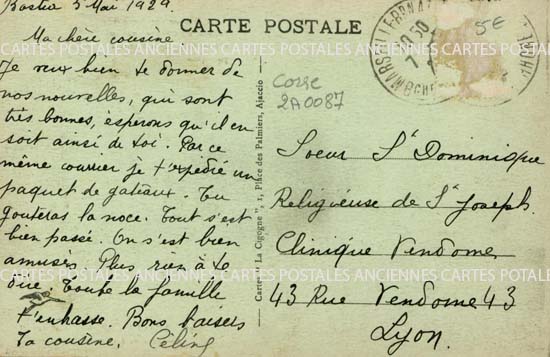 Bastia 5 Mai 1929.
CARTE POSTALE
Ma chère cousine.
Je veux bien te donner de
nos nouvelles, qui sont
très bonnes, espérons qu'il en
soit ainsi de toi. Par ce
même courrier je t'expédie un
paquet de gateaux. Tu
gouteras la noce. Tout s'est
bien passé. On s'est bien
amusés. Plus rien à te
dire. Toute la famille
t'embrasse. Bons baisers
Ta cousine. Céline
Cartes " La Cigogne ", 1, Place des Palmiers, Ajaccio
5E
Corse
2A0087
Soeur St Dominique
Religieuse de St Joseph.
Clinique Vendome
43 Rue Vendome 43
Lyon.
CARTES POSTALES ANCIENNES CARTES POSTALES ANCIENNES CARTES POSTALES